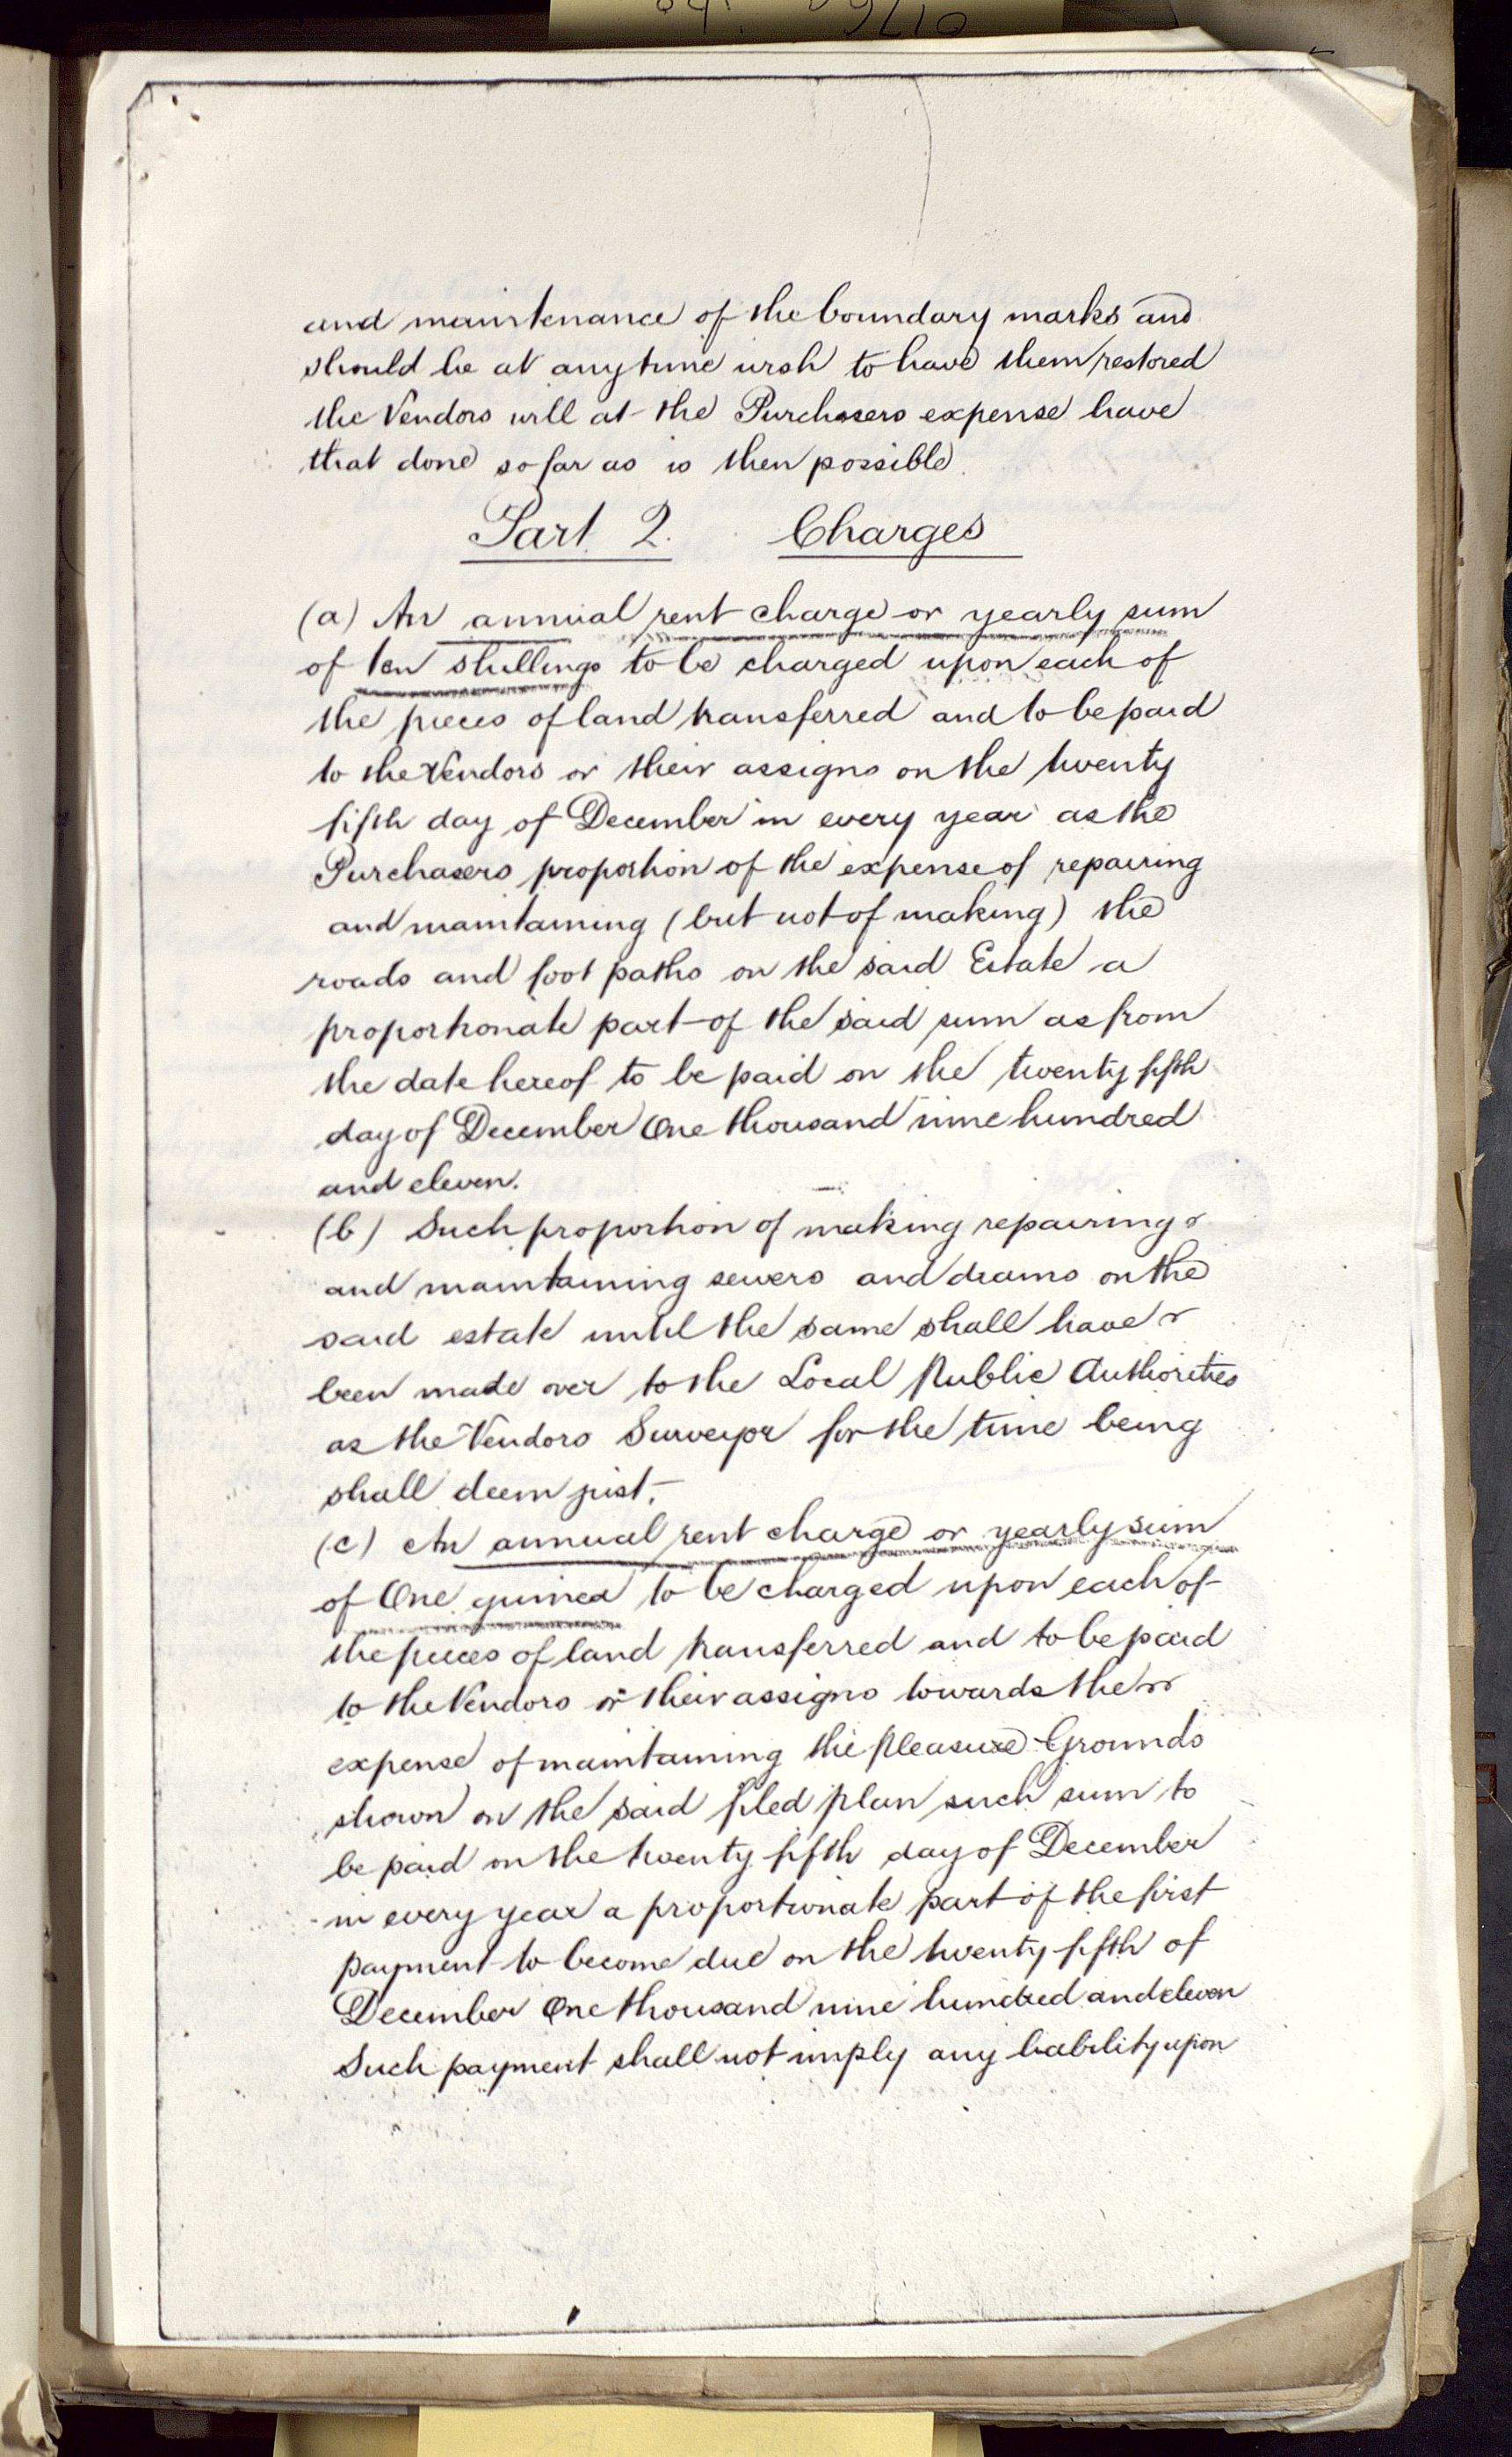 and maintenance of the boundary marks and
should he at any time wish to have them restored
the Vendors will at the Purchasers expense have
that done so far as is then possible
Part 2. Charges
(a) An annual rent charge or yearly sum
of ten shillings to be charged upon each of
the pieces of land transferred and to be paid
to the Vendors or their assigns on the twenty
fifth day of December in every year as the
Purchasers proportion of the expense of repairing
and maintaining (but not of making) the
roads and foot paths on the said Estate a
proportionate part of the said sum as from
the date hereof to be paid on the twenty fifth
day of December One thousand nine hundred
and eleven.
(b) Such proportion of making repairing
and maintaining sewers and drains on the
said estate until the same shall have
been made over to the Local Public Authorities
as the Vendors Surveyor for the time being
shall deem just.
(c) An annual rent charge or yearly sum
of One guinea to be charged upon each of
the pieces of land transferred and to be paid
to the Vendors or their assigns towards the
expense of maintaining the Pleasure Grounds
shown on the said filed plan such sum to
be paid on the twenty fifth day of December
in every year a proportionate part of the first
payment to become due on the twenty fifth of
December One thousand nine hundred and eleven
Such payment shall not imply any liability upon